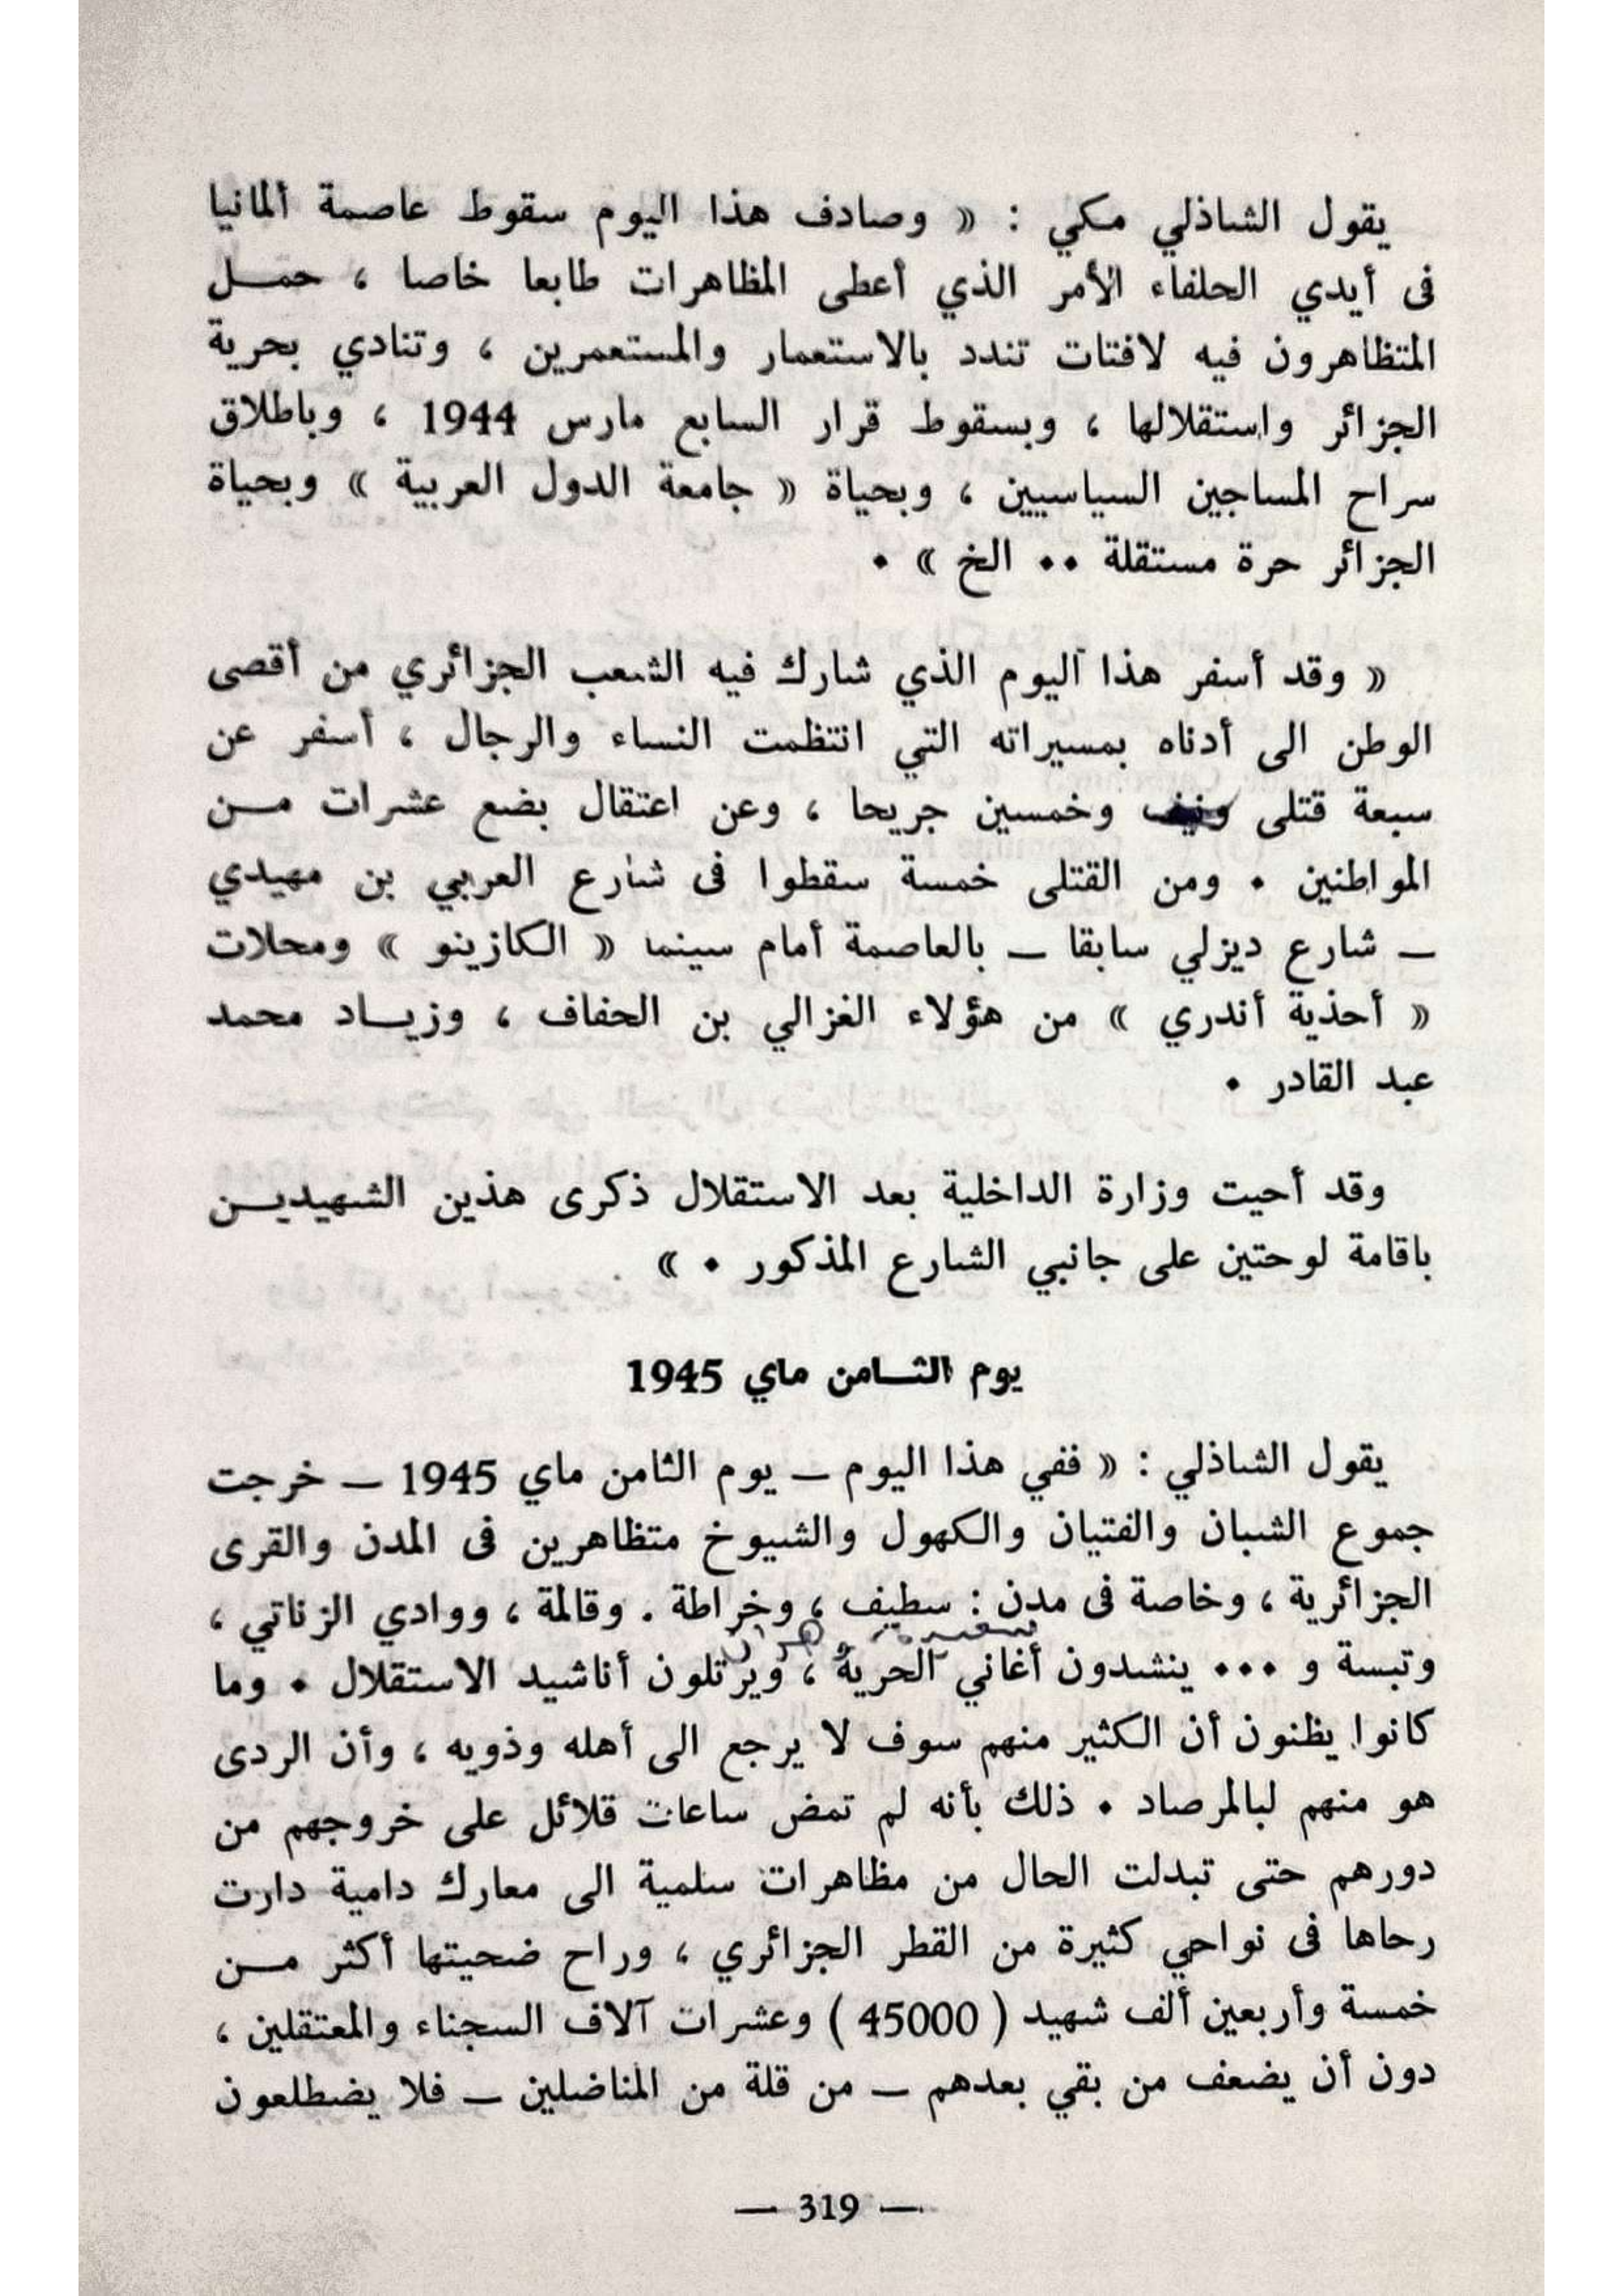 يقول الشاذلي مكي : « وصادف هذا اليوم سقوط عاصمة ألمانيا
فى أيدي الحلفاء الأمر الذي أعطى المظاهرات طابعا خاصا ، حمـــل
المتظاهرون فيه لافتات تندد بالاستعمار والمستعمرين ، وتنادي بحرية
الجزائر واستقلالها ، وبسقوط قرار السابع مارس 1944 ، وباطلاق
سراح المساجين السياسيين ، وبحياة « جامعة الدول العربية » وبحياة
الجزائر حرة مستقلة .. الخ » .
« وقد أسفر هذا اليوم الذي شارك فيه الشعب الجزائري من أقصى
الوطن الى أدناه بمسيراته التي انتظمت النساء والرجال ، أسفر عن
سبعة قتلى ونيف وخمسين جريحا ، وعن اعتقال بضع عشرات مـــن
المواطنين . ومن القتلى خمسة سقطوا فى شارع العربي بن مهيدي
ـ شارع ديزلي سابقا ـ بالعاصمة أمام سينما « الكازينو » ومحلات
« أحذية أندري » من هؤلاء الغزالي بن الحفاف ، وزيـــاد محمد
عبد القادر .
وقد أحيت وزارة الداخلية بعد الاستقلال ذكرى هذين الشهيديـــن
باقامة لوحتين على جانبي الشارع المذكور . »
يوم الثـــامن ماي 1945
يقول الشاذلي : « ففي هذا اليوم ـ يوم الثامن ماي 1945 ـ خرجت
جموع الشبان والفتيان والكهول والشيوخ متظاهرين فى المدن والقرى
الجزائرية ، وخاصة فى مدن : سطيف ، وخراطة . وقالمة ، ووادي الزناتي ،
وتبسة و ... ينشدون أغاني الحرية ، ويرتلون أناشيد الاستقلال . وما
كانوا يظنون أن الكثير منهم سوف لا يرجع الى أهله وذويه ، وأن الردى
هو منهم لبالمرصاد . ذلك بأنه لم تمض ساعات قلائل على خروجهم من
دورهم حتى تبدلت الحال من مظاهرات سلمية الى معارك دامية دارت
رحاها فى نواحي كثيرة من القطر الجزائري ، وراح ضحيتها أكثر مـــن
خمسة وأربعين ألف شهيد ( 45000 ) وعشرات آلاف السجناء والمعتقلين ،
دون أن يضعف من بقي بعدهم ـ من قلة من المناضلين ـ فلا يضطلعون
— 319 —